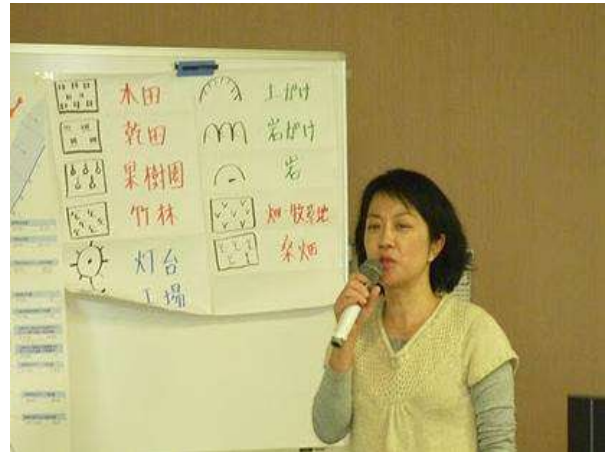 水田
乾田
果樹園
竹林
灯台
工場
土がけ
岩がけ
岩
畑・牧草地
桑畑